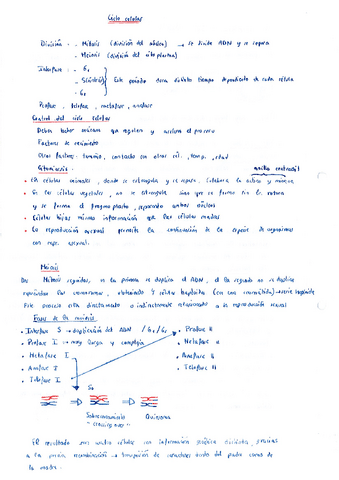 Ciclo celular
División: - Mitosis (división del núcleo) → se divide ADN y se separa
- Meiosis (división del citoplasma)
Interfase: - G1
- S(síntesis) Este periodo dura distinto tiempo dependiendo de cada célula
- G2
Profase, telofase, metafase, anafase
Control del ciclo celular
Deben haber enzimas que regulen y aceleren el proceso
Factores de crecimiento
Otros factores: tamaño, contacto con otras cel., temp., edad
Citocinesis
anillo contráctil
• En células animales, donde se estrangula y se separa,
• En las células vegetales, no se estrangula sino que se forma
y se forma el fragmoplasto, separando ambos núcleos
• Células hijas misma información que las células madres
• La reproducción asexual permite la de la especie de organismos
con repr. asexual.
Meiosis
Dos Mitosis seguidas, en la primera se duplica el ADN, el la segunda no se duplica
los cromosomas, obteniendo 4 células haploides (con una cromátida)
Este proceso está directamente o indirectamente relacionado a la reproducción sexual
Fases de la meiosis
• Interfase S → duplicación del ADN / G1 / G2
• Profase I → muy larga y compleja
• Metafase I
• Anafase I
• Telofase I
• Profase II
• Metafase II
• Anafase II
• Telofase II
Sobrecruzamiento
"crossing over"
Quiasma
El resultado son cuatro células con información genética distinta, gracias
a la previa recombinación → de caracteres tanto del padre como de
la madre.